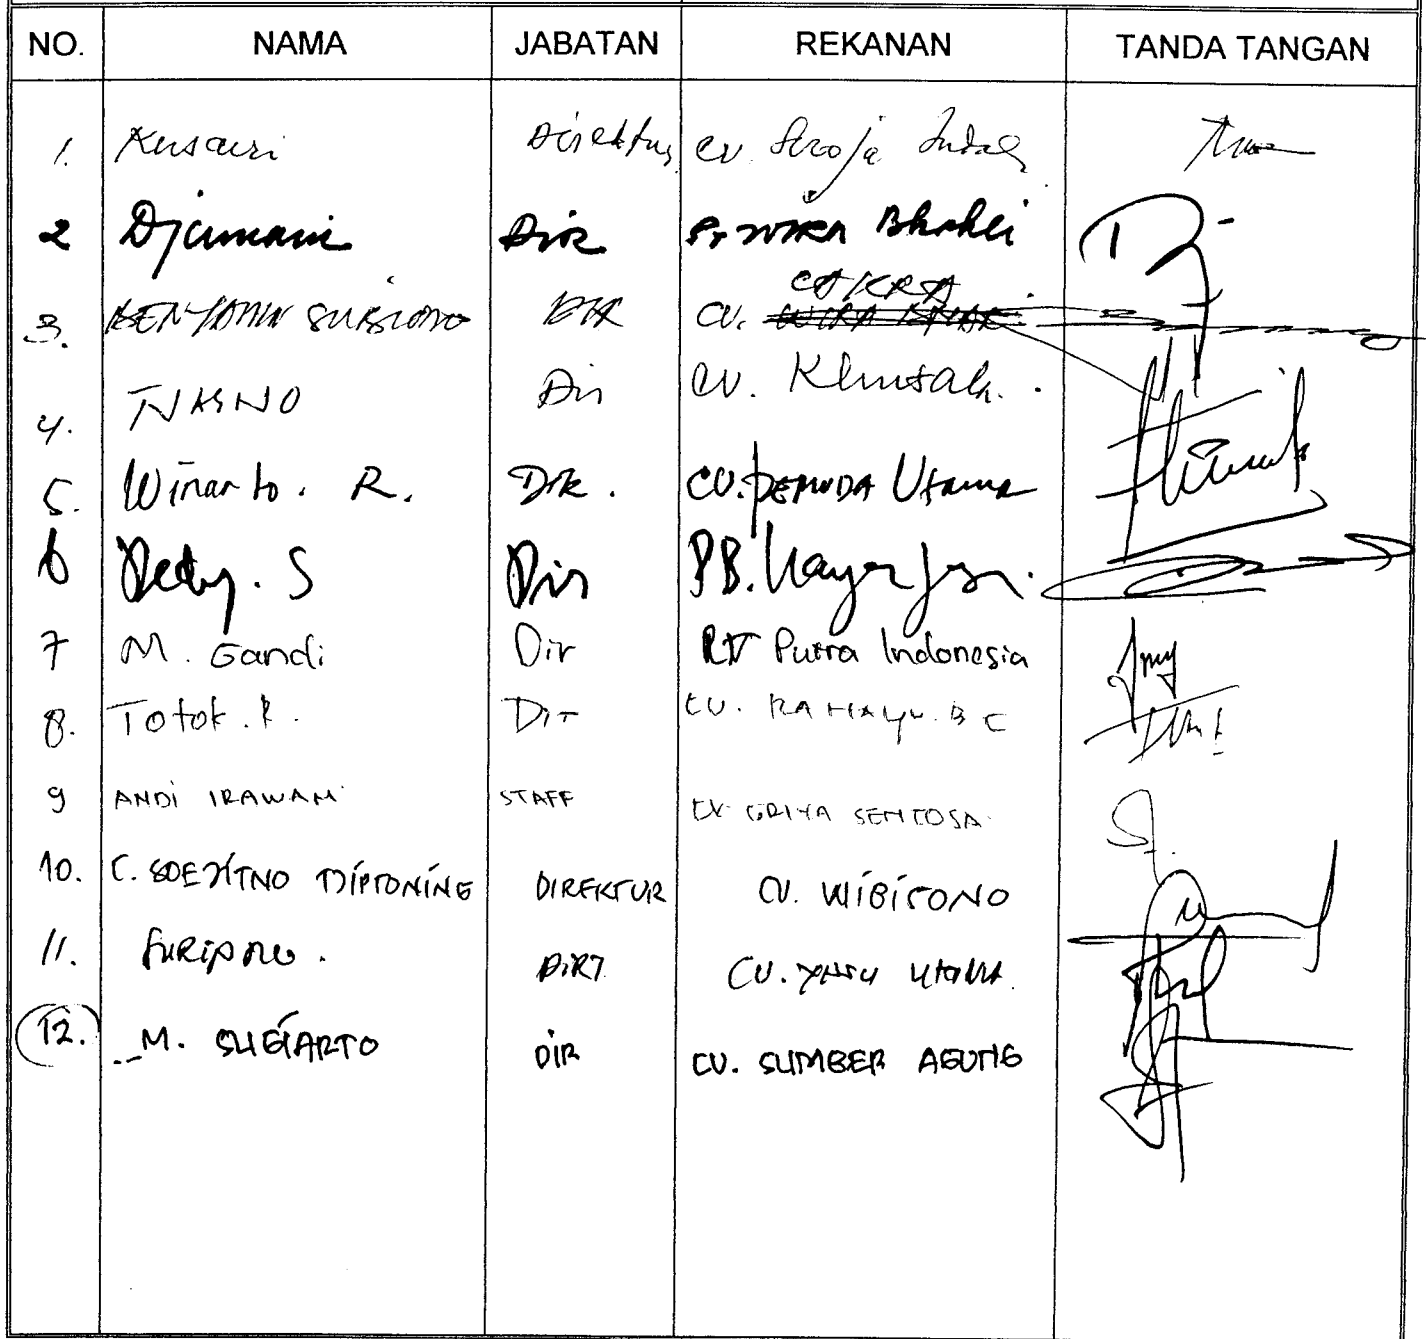 NO. NAMA JABATAN REKANAN TANDA TANGAN
1. Kusairi Direktur CV. Seroja Indah
2 Djumani Dir Bhakti
3. BENYAMIN SUBIONO DIR CV. CAKRA
4. TJASNO Dir CV.
5. Winarto. R. Dir. CV. PEMUDA Utama
6 Dedy. S Dir PB. Jaya.
7 M. Gandi Dir Putra Indonesia
8. Totok. R. Dir CV. RAHAYU. B C
9 ANDI IRAWAN STAFF CV GRIYA SENTOSA
10. C. DIREKTUR CV. WIBISONO
11. DIRT CV. UTAMA
12. M. SUGIARTO DIR CV. SUMBER AGUNG